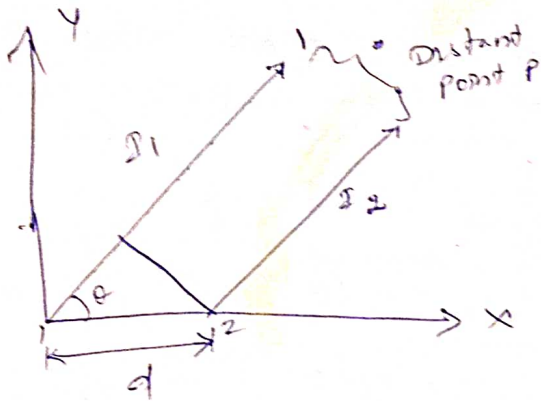 Y
Distant
point P
I1
I2
θ
1
2
X
d